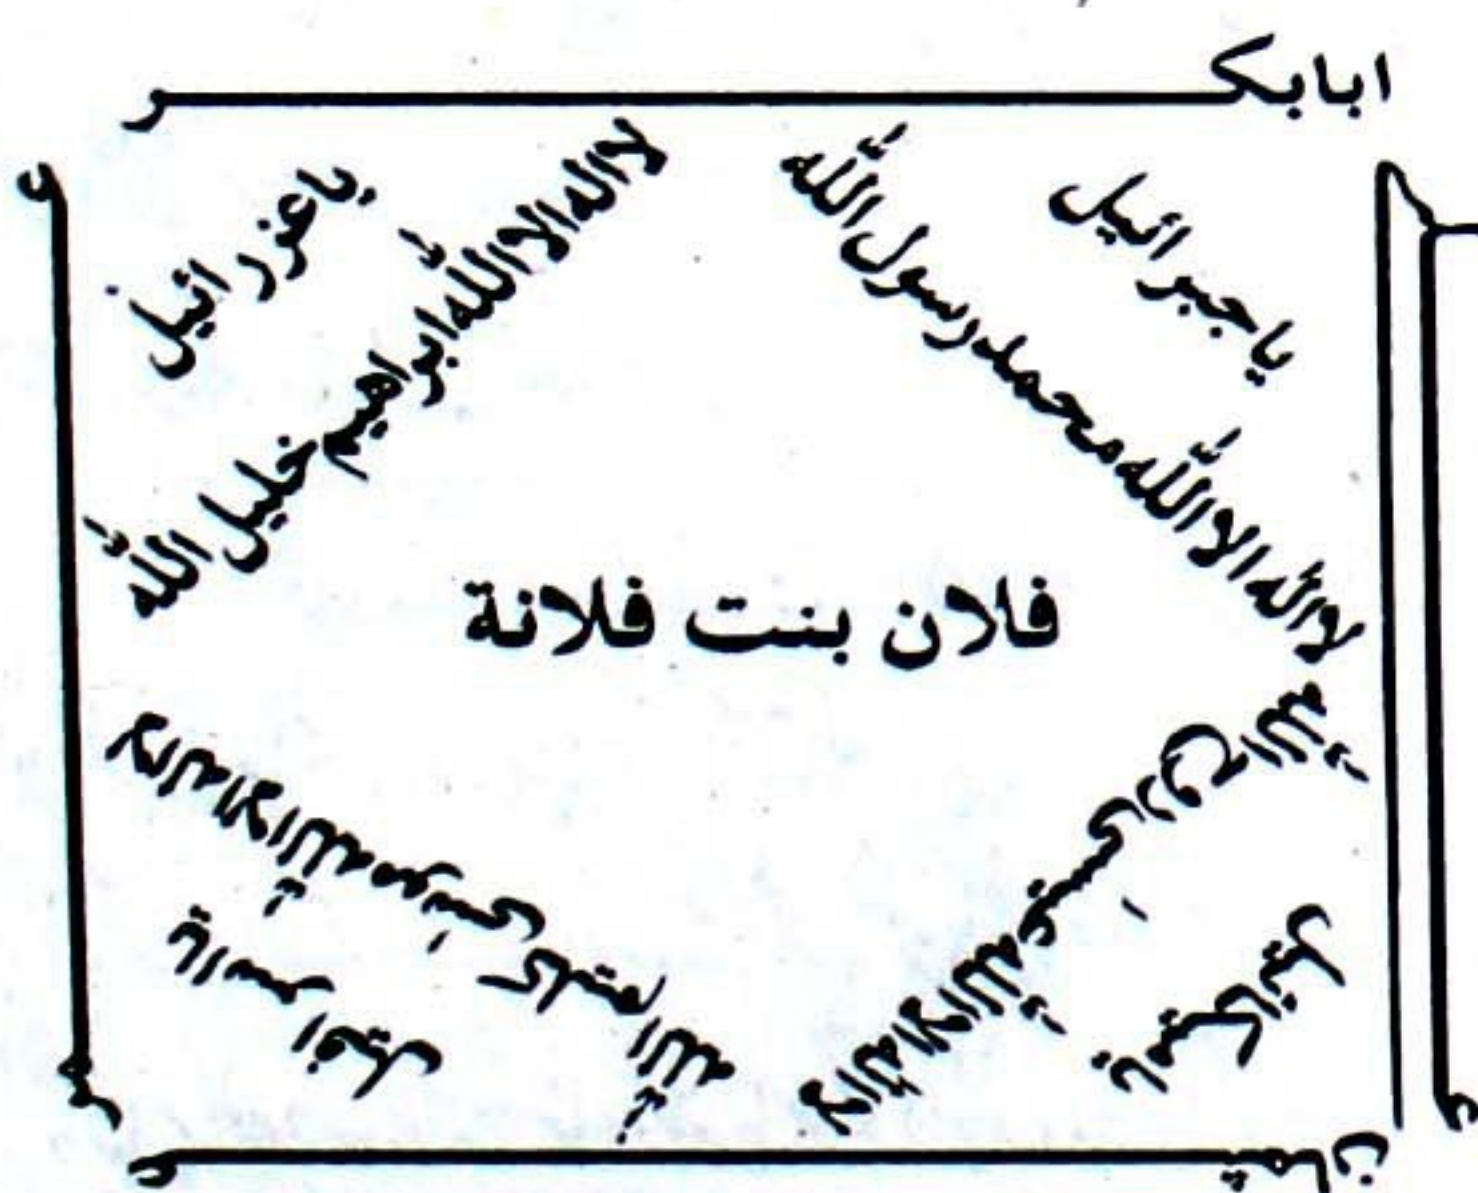 ابابكر
يا جبرائيل
لا اله الا الله محمد رسول الله
يا عزرائيل
لا اله الا الله ابراهيم خليل الله
فلان بنت فلانة
لا اله الا الله موسى كليم الله
يا اسرافيل
لا اله الا الله عيسى روح الله
يا ميكائيل
عمر